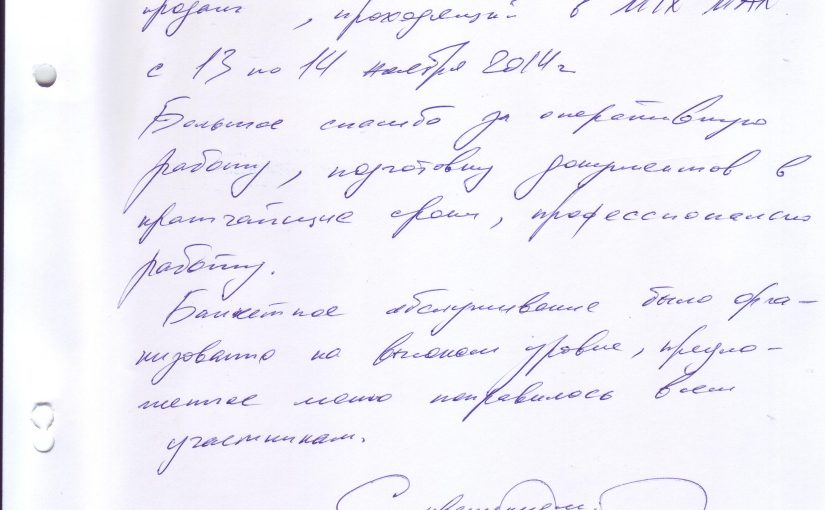 продаж, проходящей в МТК МАЛ
с 13 по 14 ноября 2014 г
Большое спасибо за оперативную
работу, подготовку документов в
кратчайшие сроки, профессиональную
работу.
Банкетное обслуживание было орга-
низованно на высоком уровне, предло-
женное меню понравилось всем
участникам.
С уважением,